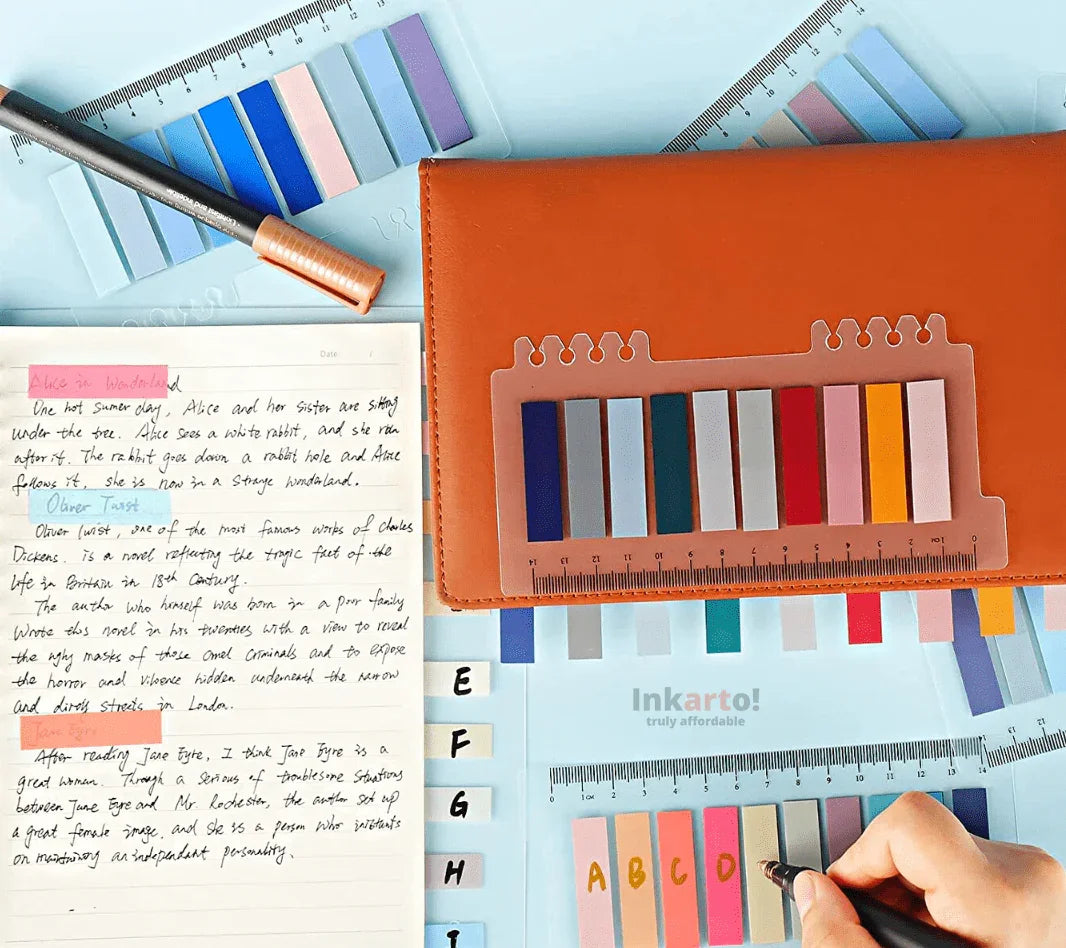 Date: /
Alice in Wonderland
One hot sumer day, Alice and her sister are sitting
under the tree. Alice sees a white rabbit, and she ran
after it. The rabbit goes down a rabbit hole and Alice
follows it, she is now in a strange wonderland.
Oliver Twist
Oliver Twist, one of the most famous works of Charles
Dickens. is a novel reflecting the tragic fact of the
life in Britain in 18th Century.
The author who himself was born in a poor family
wrote this novel in his twenties with a view to reveal
the ugly masks of those cruel criminals and to expose
the horror and violence hidden underneath the narrow
and dirty streets in London.
Jane Eyre
After reading Jane Eyre, I think Jane Eyre is a
great woman. Through a series of troublesome situations
between Jane Eyre and Mr. Rochester, the author set up
a great female image, and she is a person who insistants
on maintaining an independant personality.
14 13 12 11 10 9 8 7 6 5 4 3 2 1CM 0
E
F
G
H
I
Inkarto!
truly affordable
0 1CM 2 3 4 5 6 7 8 9 10 11 12 13 14
A B C D